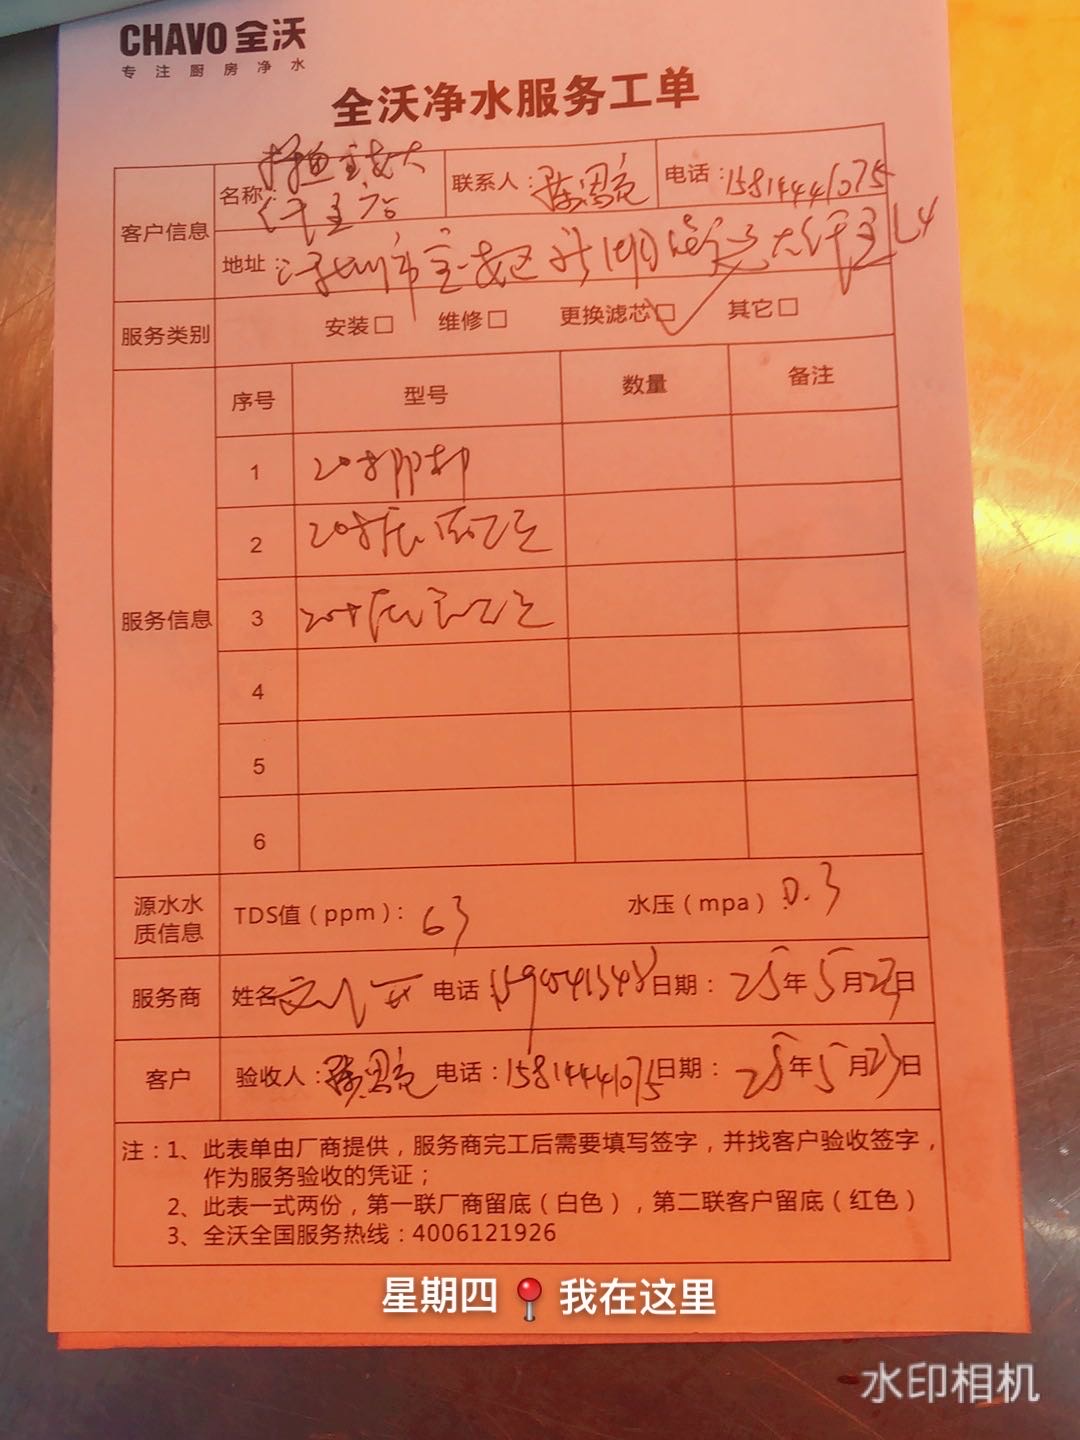 CHAVO 全沃
专注厨房净水
全沃净水服务工单
客户信息
名称：宝安大仟里店
联系人：陈恩克
电话：15814441075
地址：深圳市宝安区新湖路 大仟里L4
服务类别 安装□ 维修□ 更换滤芯□✓ 其它□
服务信息
序号 型号 数量 备注
1 20寸
2 20寸
3 20寸
4
5
6
源水水质信息 TDS值（ppm）：63 水压（mpa）0.3
服务商 姓名 电话：日期：25年5月 日
客户 验收人：陈恩克 电话：15814441075 日期：25年5月23日
注：1、此表单由厂商提供，服务商完工后需要填写签字，并找客户验收签字，
作为服务验收的凭证；
2、此表一式两份，第一联厂商留底（白色），第二联客户留底（红色）
3、全沃全国服务热线：4006121926
星期四📍我在这里
水印相机